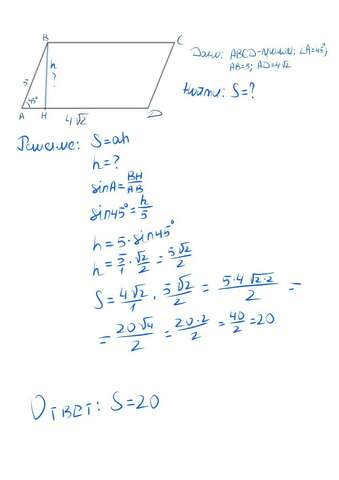 B
C
h
?
5
45°
A
H
4√2
D
Дано: ABCD - ∠A=45°;
AB=5; AD=4√2
Найти: S=?
Решение: S=ah
h=?
sinA=BH/AB
sin45°=h/5
h=5·sin45°
h=5/1·√2/2=5√2/2
S=4√2/1·5√2/2=5·4√2·2/2=
=20√4/2=20·2/2=40/2=20
Ответ: S=20